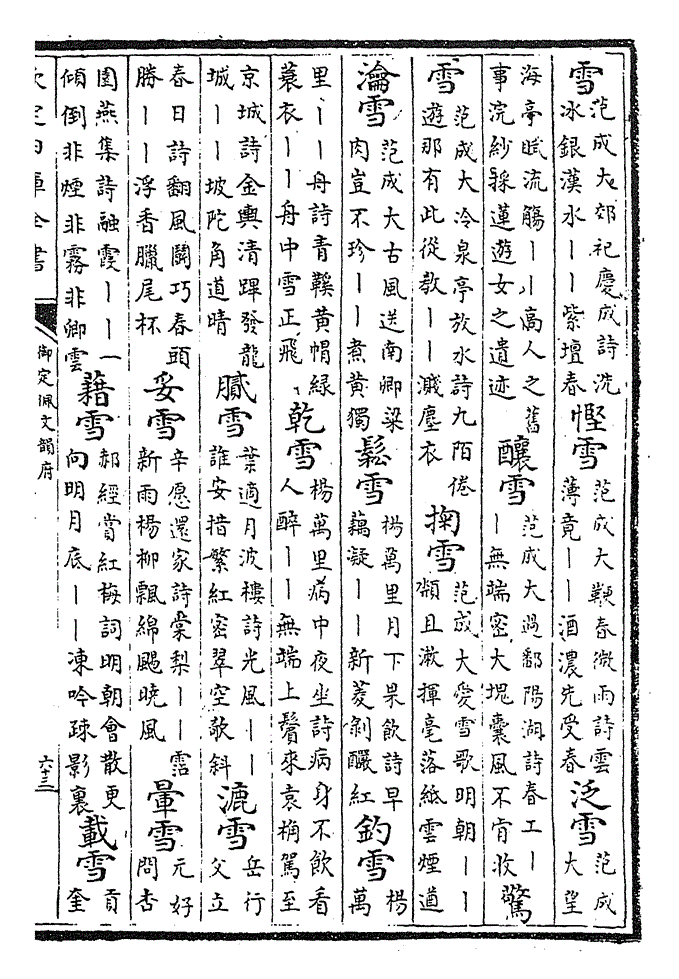 雪范成大郊祀慶成詩洗冰銀漢水丨丨紫壇春慳雪范成大鞭春微雨詩雲薄竟丨丨酒濃先受春泛雪范成大望
海亭賦流觴丨丨高人之舊事浣紗採蓮遊女之遺迹釀雪范成大過鄱陽湖詩春工丨丨無端密大塊囊風不肯收驚
雪范成大冷泉亭放水詩九陌倦遊那有此從教丨丨濺塵衣掬雪范成大愛雪歌明朝丨丨頮且漱揮毫落紙雲煙遒
瀹雪范成大古風送南卿梁肉豈不珍丨丨煮黃獨鬆雪楊萬里月下果飲詩早藕凝丨丨新菱剝釅紅釣雪楊萬
里丨丨舟詩青鞵黃帽綠蓑衣丨丨舟中雪正飛乾雪楊萬里病中夜坐詩病身不飲看人醉丨丨無端上鬢來袁桷駕至
京城詩金輿清蹕發龍城丨丨坡陀角道晴膩雪葉適月波樓詩光風丨丨誰安措繁紅密翠空欹斜漉雪岳行父立
春日詩翻風鬭巧春頭勝丨丨浮香臘尾杯妥雪辛愿還家詩棠梨丨丨霑新雨楊柳飄綿颺曉風暈雪元好問杏
園燕集詩融霞丨丨一傾倒非煙非霧非卿雲藉雪郝經賞紅梅詞明朝會散更向明月底丨丨凍吟疎影裏載雪貢奎
欽定四庫全書
御定佩文韻府
六十三